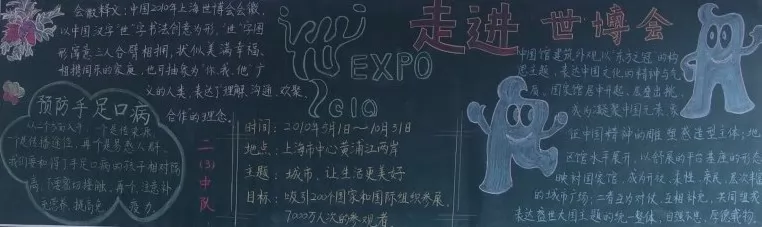 会徽释文:中国2010年上海世博会会徽,
以中国汉字"世"字书法创意为形,"世"字图
形寓意三人合臂相拥,状似美满幸福、
相携同乐的家庭,也可抽象为"你、我、他"广
义的人类,表达了"理解、沟通、欢聚、
合作"的理念。
预防手足口病
EXPO
2010
走进世博会
二(3)中队
时间:2010年5月1日~10月31日
地点:上海市中心黄浦江两岸
主题:城市,让生活更美好
目标:吸引200个国家和国际组织参展,
7000万人次的参观者。
中国馆建筑外观以"东方之冠"的构
思主题,表达中国文化的精神与气
质。国家馆居中升起、层叠出挑,
成为凝聚中国元素、象
征中国精神的雕塑感造型主体;地
区馆水平展开,以舒展的平台基座的形态
映衬国家馆,成为开放、柔性、亲民、层次丰富
的城市广场;二者互为对仗、互相补充,共同组成
表达盛世大国主题的统一整体,自强不息,厚德载物。